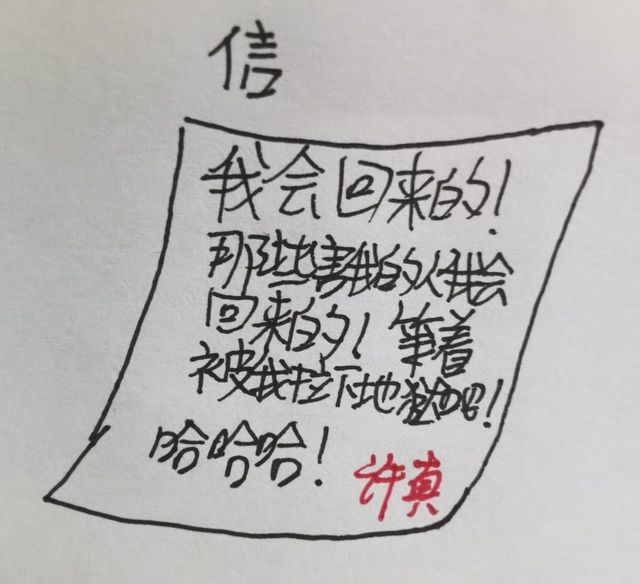 信
我会回来的！
那些害我的人我会
回来的！等着
被我拉下地狱吧！
哈哈哈！
许真